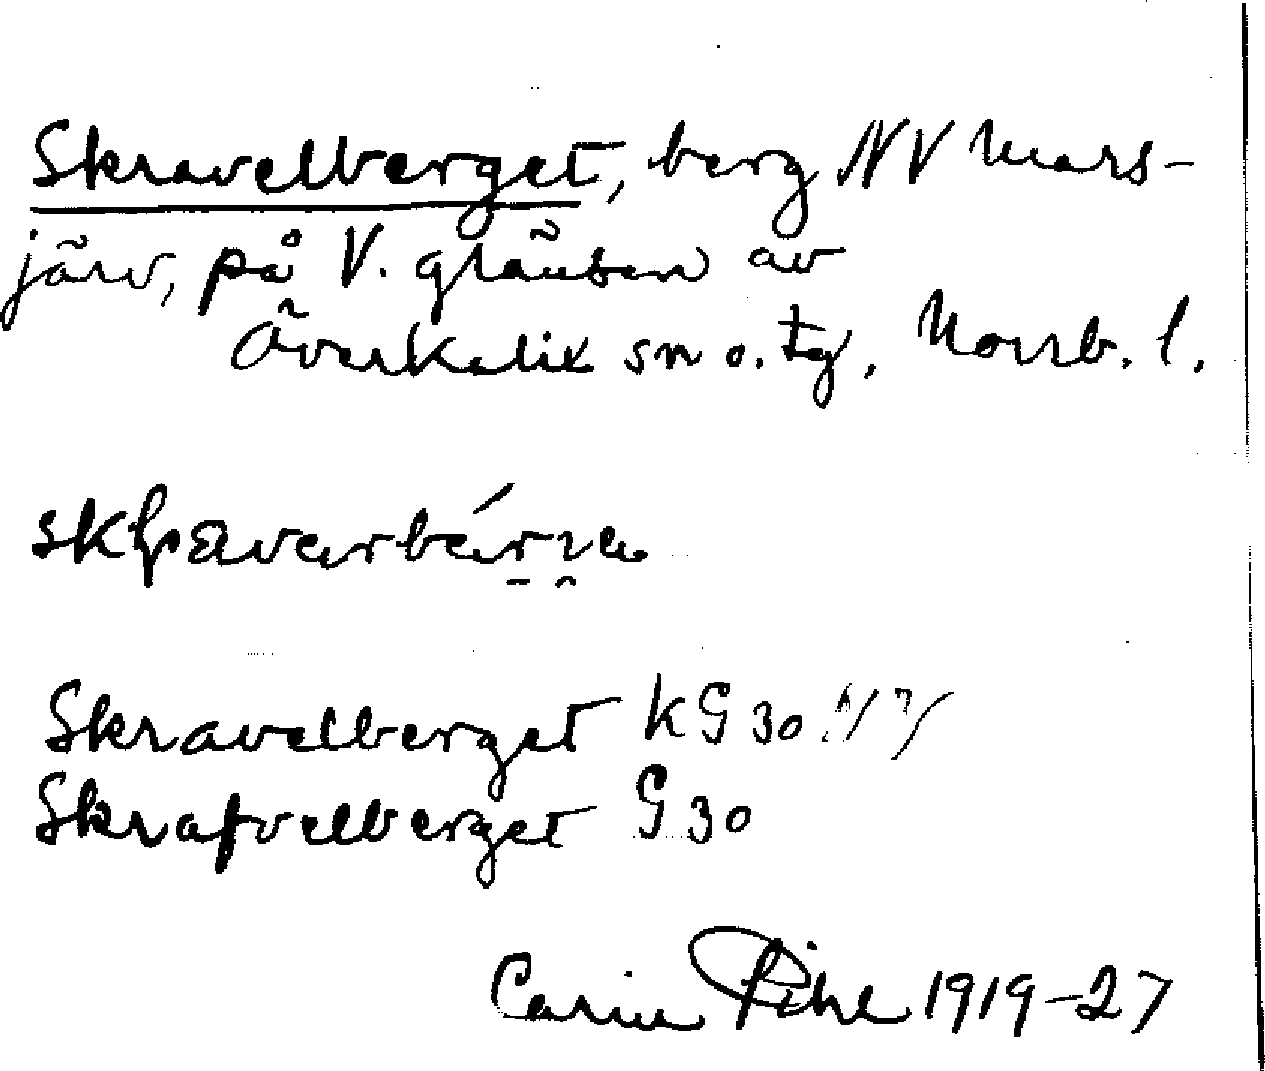 Skravelberget, berg NV Mars-
järv, på V. gränsen av
Överkalix sn o. tg, Norrb. l.
Skravelberget KG 30
Skrafvelberget G 30
Carin Pihl 1919-27